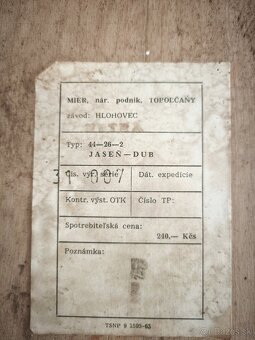 MIER, nár. podnik, TOPOĽČANY
závod: HLOHOVEC
Typ: 44—26—2
JASEŇ—DUB
Čís. výr. série
Dát. expedície
Kontr. výst. OTK
Číslo TP:
Spotrebiteľská cena:
240,— Kčs
Poznámka: